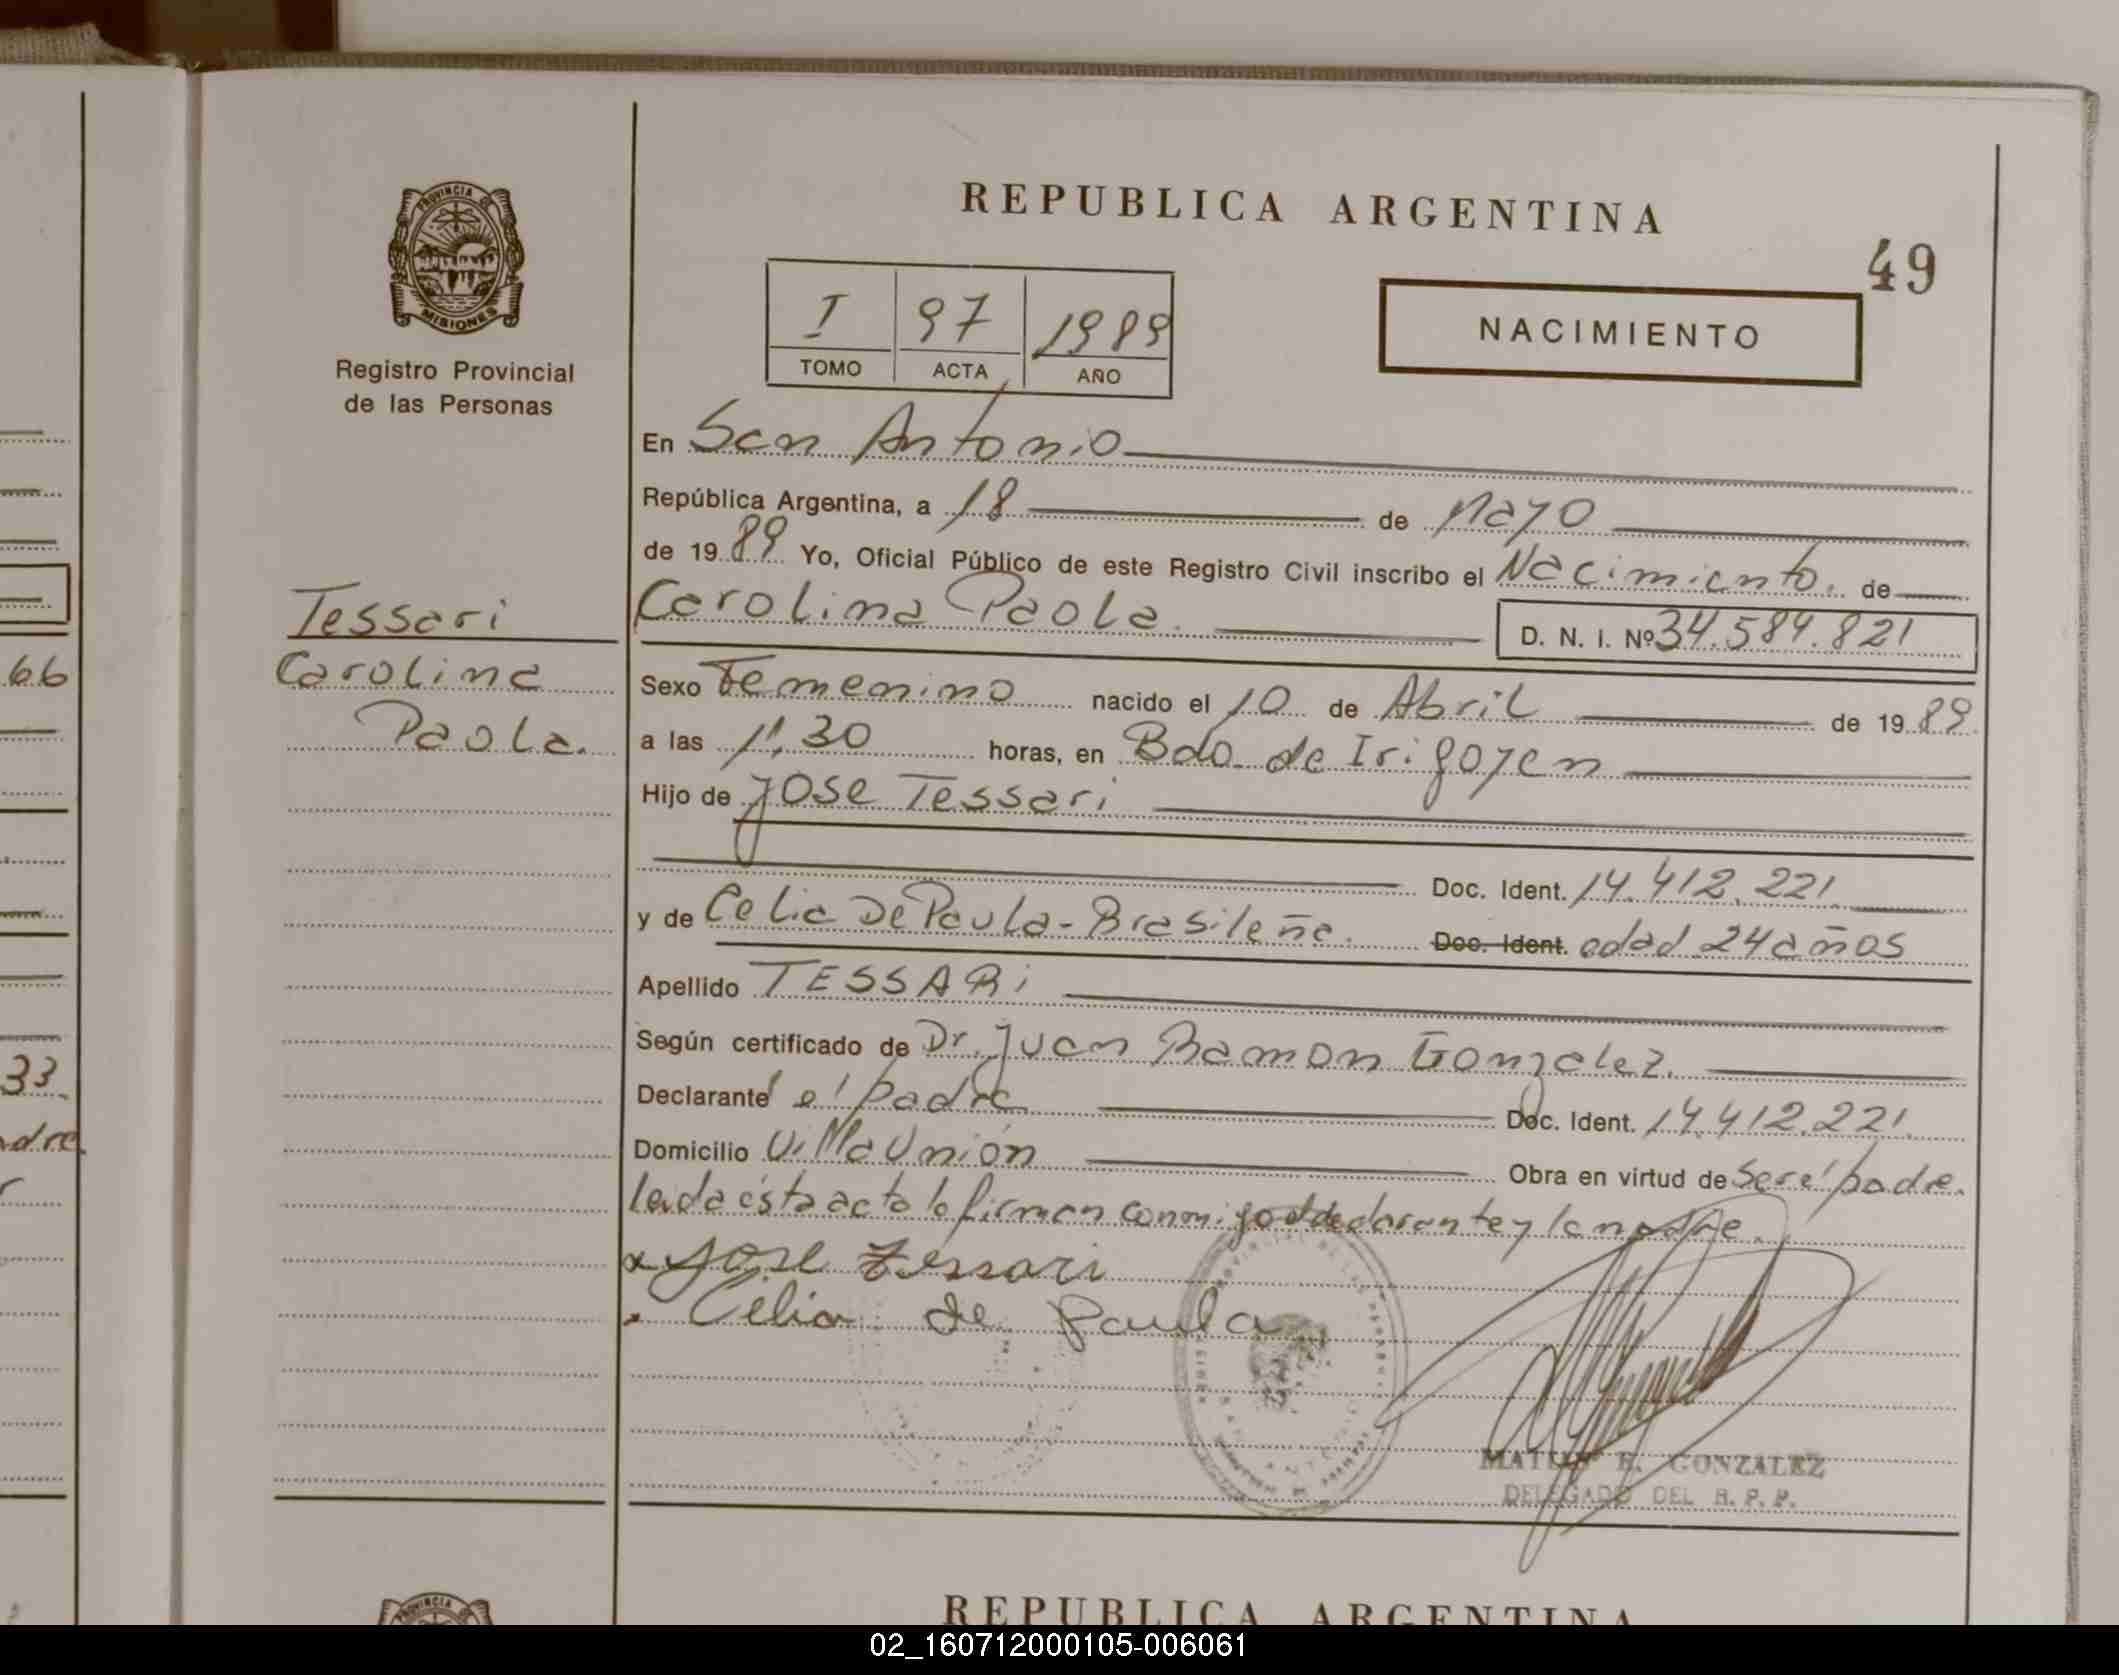 PROVINCIA DE
MISIONES
Registro Provincial
de las Personas
Tessari
Carolina
Paola.
REPUBLICA ARGENTINA
49
I 97 1989
TOMO ACTA AÑO
NACIMIENTO
En San Antonio
República Argentina, a 18 de Mayo
de 1989 Yo, Oficial Público de este Registro Civil inscribo el Nacimiento. de
Carolina Paola. D. N. I. Nº 34.584.821
Sexo Femenino nacido el 10 de Abril de 1989.
a las 11,30 horas, en Bdo. de Irigoyen
Hijo de Jose Tessari
Doc. Ident. 14.412.221.
y de Celia De Paula - Brasileña. Doc. Ident. edad 24 años
Apellido TESSARi
Según certificado de Dr. Juan Ramon Gonzalez.
Declarante el padre Doc. Ident. 14.412.221.
Domicilio Villa Unión Obra en virtud de ser el padre.
leida ésta acta la firman conmigo el declarante y la madre.
x Jose Tessari
x Celia de Paula
GONZALEZ
DELEGADO DEL R. P. P.
66
33.
adre.
REPUBLICA ARGENTINA
02_160712000105-006061